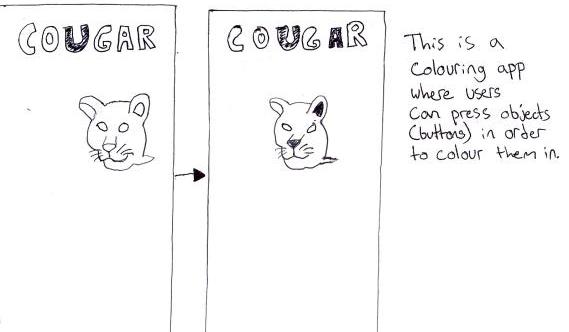 COUGAR
COUGAR
This is a
Colouring app
where users
Can press objects
(buttons) in order
to colour them in.